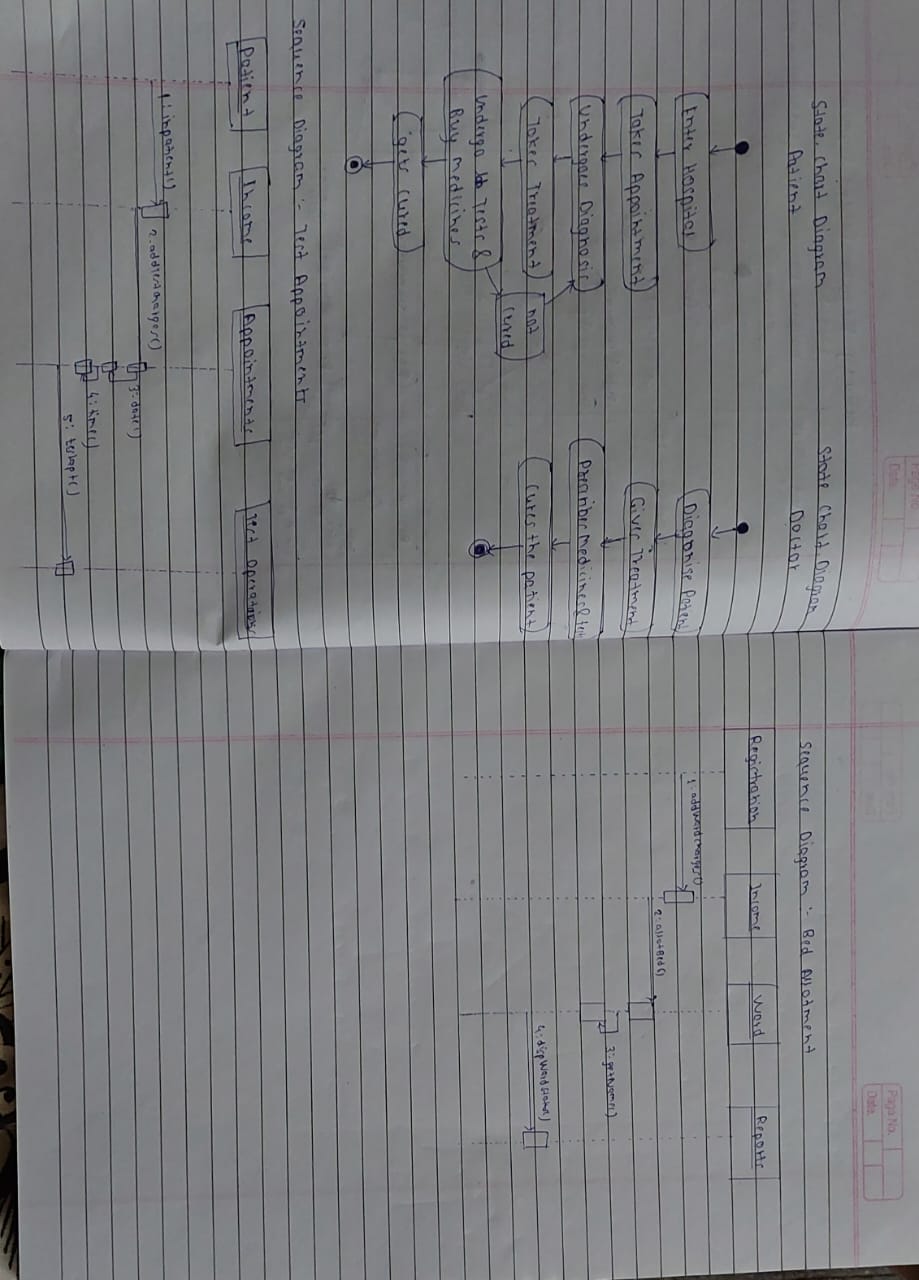 State Chart Diagram
Patient
Enter Hospital
Takes Appointment
Undergoes Diagnosis
Takes Treatment
not
cured
Undergo Tests &
Buy medicines
gets cured
State Chart Diagram
Doctor
Diagonise Patient
Gives Treatment
Prescribes medicines & test
Cures the patient
Sequence Diagram :- Test Appointments
Patient
Income
Appointments
Test Operations
1: inpatient()
2: addTestcharges()
3: date()
4: time()
5: testapt()
Page No.
Date
Sequence Diagram :- Bed Allotment
Registration
Income
Ward
Reports
1: addWardcharges()
2: allotBed()
3: getName()
Page No.
Date